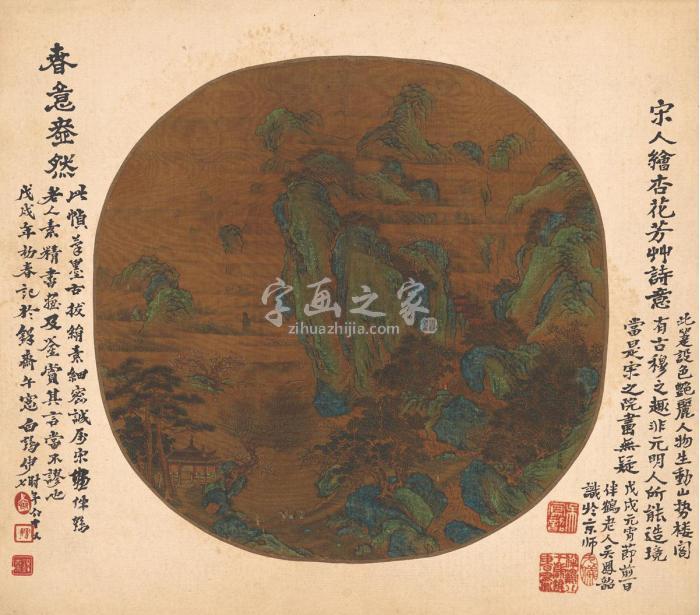 宋人繪杏花芳艸詩意
此箑設色艷麗人物生動山勢樓閣
有古穆之趣非元明人所能造境
當是宋之院畫無疑
戊戌元宵節前一日
伴鶴老人吳鳳韶
識於京師
春意盎然
此幀筆墨古拔絹素細密誠屬宋畫伴鶴
老人素精書畫及鉴賞其言當不謬也
戊戌年初春記於
字画之家
zihuazhijia.com